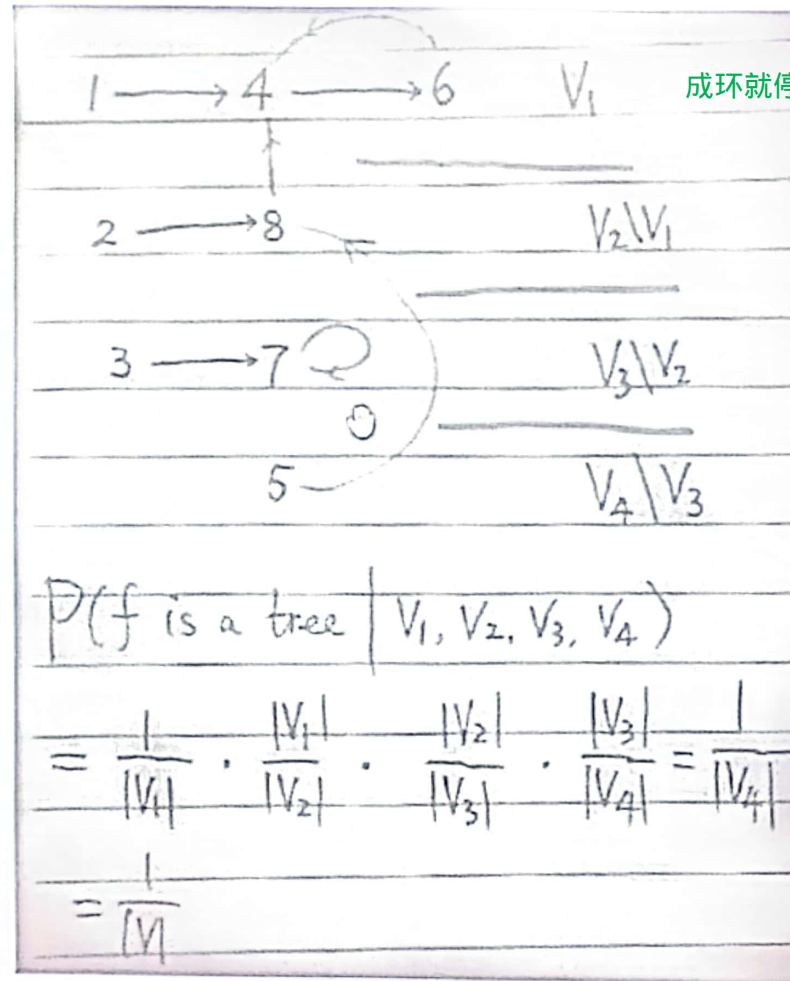 1 → 4 → 6 V₁ 成环就停
2 → 8 V₂\V₁
3 → 7 V₃\V₂
5 V₄\V₃
P(f is a tree | V₁, V₂, V₃, V₄)
= 1/|V₁| · |V₁|/|V₂| · |V₂|/|V₃| · |V₃|/|V₄| = 1/|V₄|
= 1/|V|